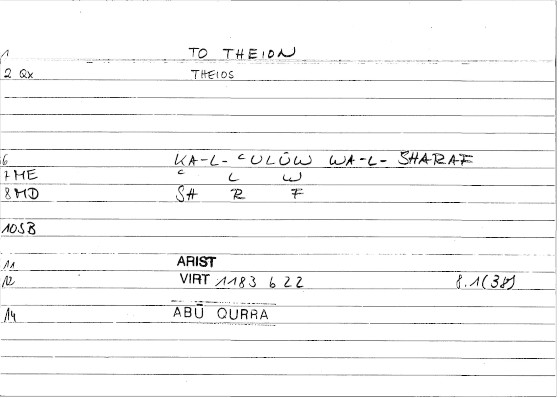 1 TO THEION
2 Qx THEIOS
6 KA-L-ᶜULŪW WA-L-SHARAF
7 ME ᶜ L W
8 MD SH R F
10 SB
11 ARIST
12 VIRT 1183 b 22 8.1(38)
14 ABŪ QURRA